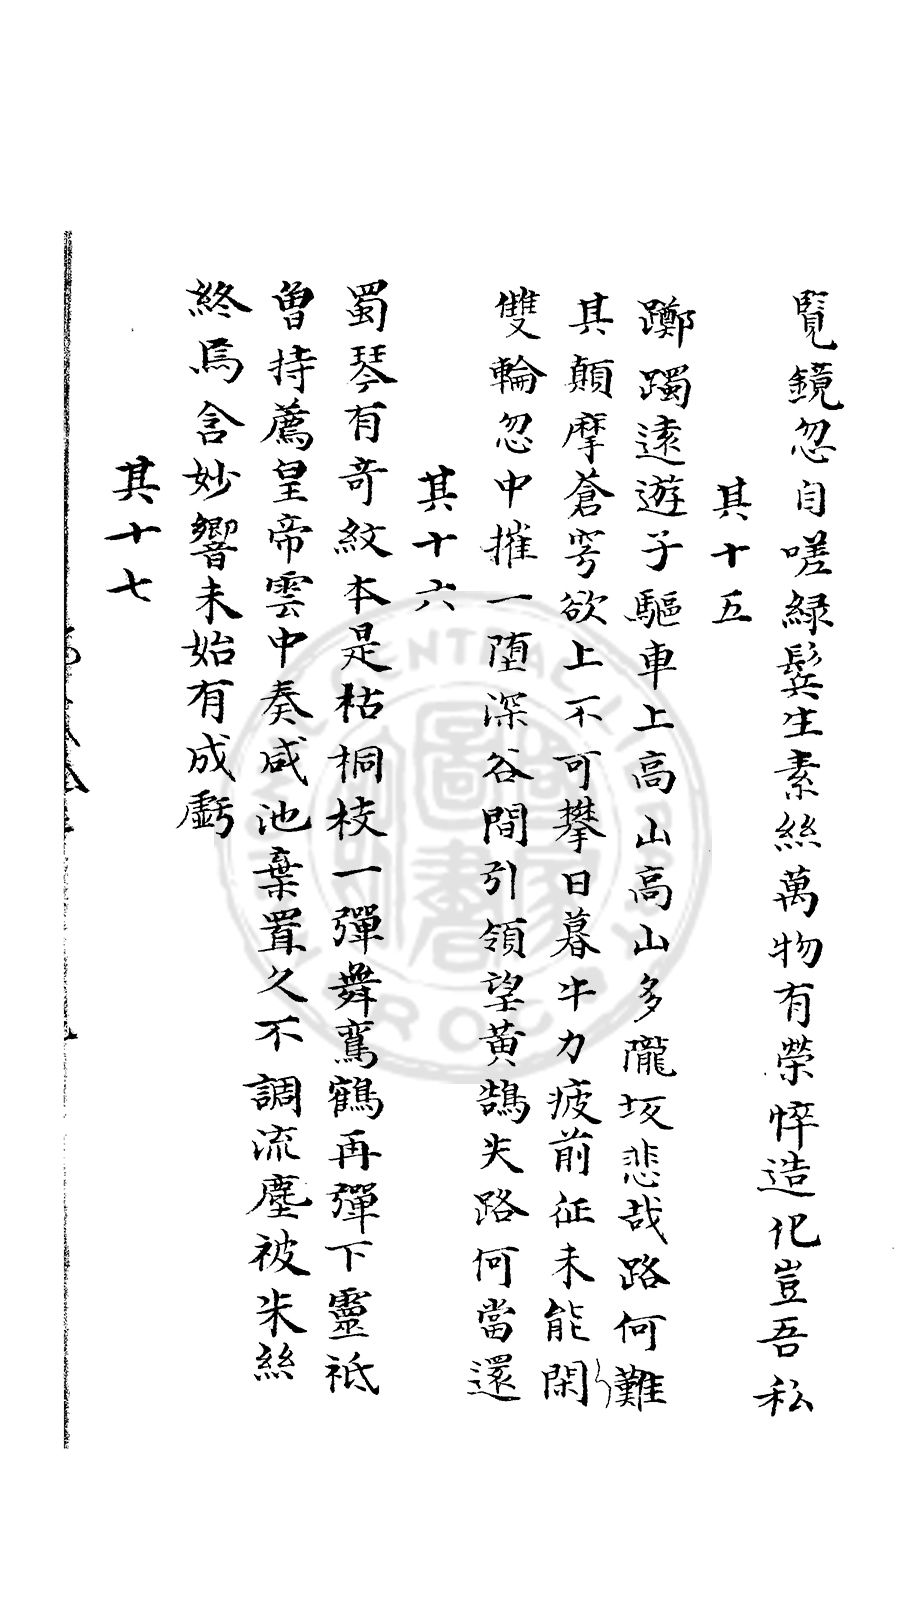 覽鏡忽自嗟綠鬓生素絲萬物有榮悴造化豈吾私
其十五
躑躅遠遊子驅車上高山高山多隴坂悲哉路何難
其顛摩蒼穹欲上不可攀日暮牛力疲前征未能閑
雙輪忽中摧一墮深谷間引領望黃鵠失路何當還
其十六
蜀琴有竒紋本是枯桐枝一彈舞鸞鶴再彈下靈祗
曽持薦皇帝雲中奏咸池棄置久不調流塵被朱絲
終焉含妙響未始有成虧
其十七